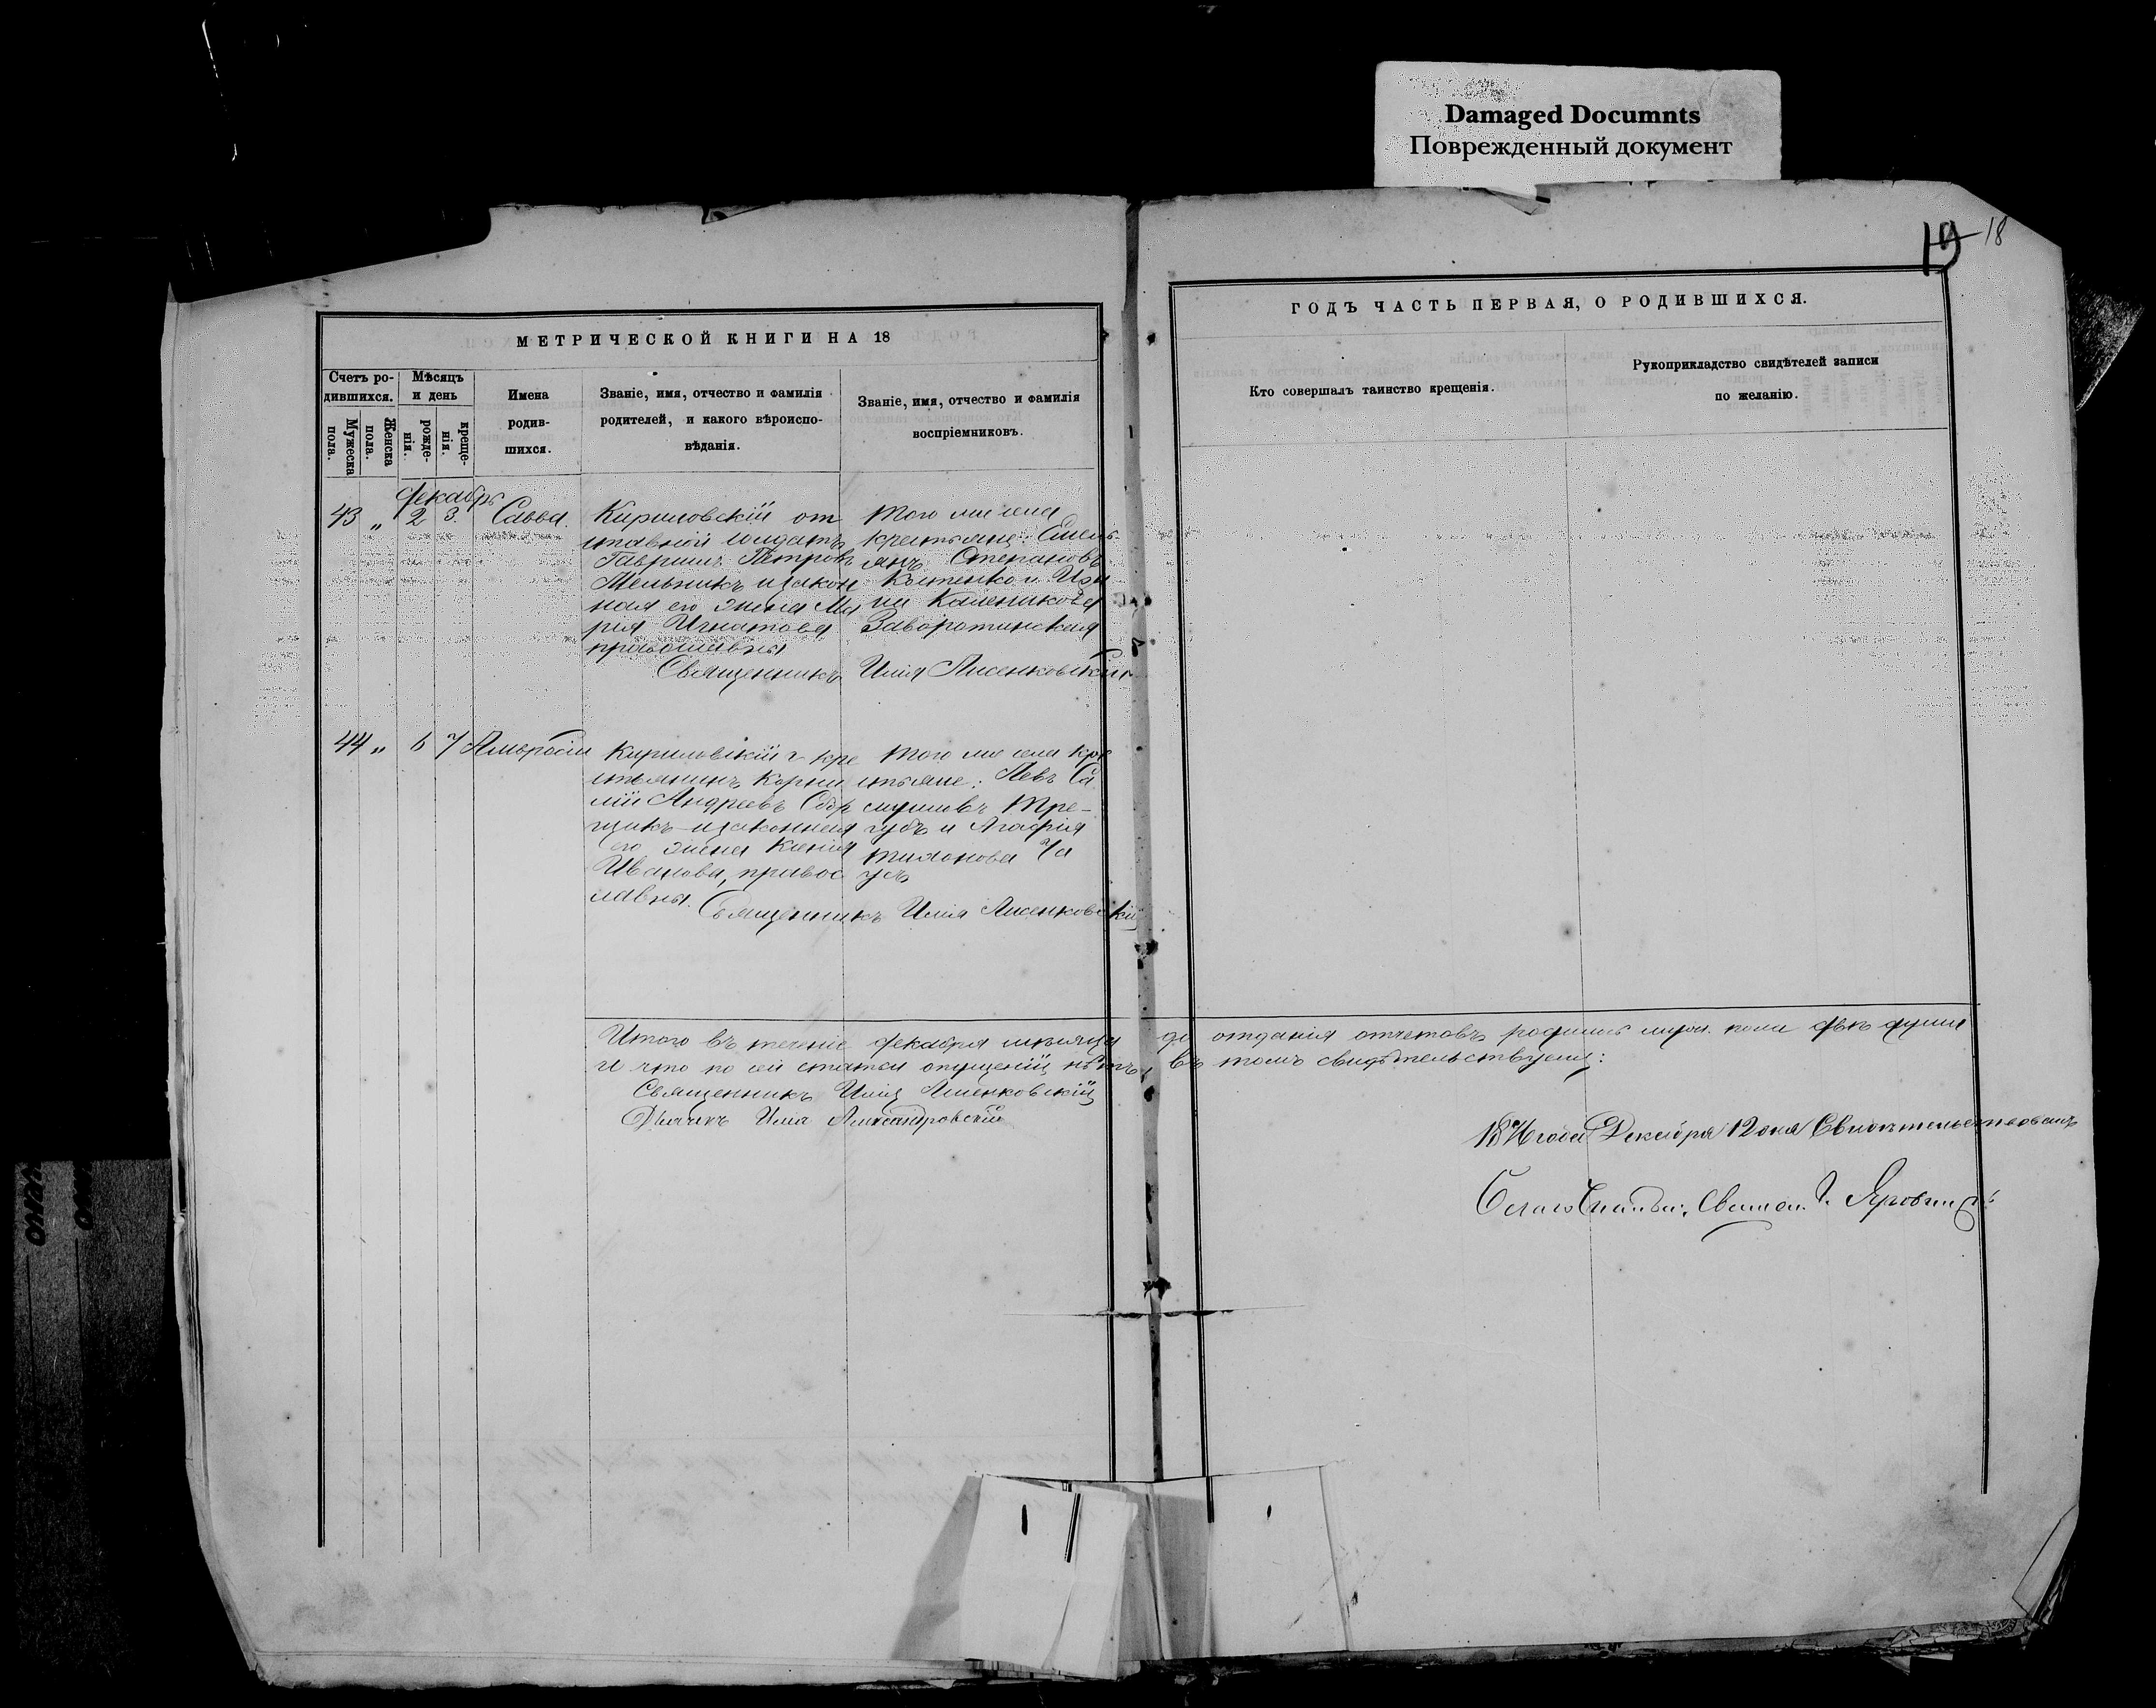 Damaged Documnts
Поврежденный документ
19 18
МЕТРИЧЕСКОЙ КНИГИ НА 18
ГОДЪ ЧАСТЬ ПЕРВАЯ, О РОДИВШИХСЯ.
Счетъ ро-
дившихся.
Мужеска
пола.
Женска
пола.
Мѣсяцъ
и день
рожде-
нія.
креще-
нія.
Имена
родив-
шихся.
Званіе, имя, отчество и фамилія
родителей, и какого вѣроиспо-
вѣданія.
Званіе, имя, отчество и фамилія
воспріемниковъ.
Кто совершалъ таинство крещенія.
Рукоприкладство свидѣтелей записи
по желанію.
декабрь
43 „ 2 3. Савва.
Кириловскій от
ставной солдатъ
Гавріилъ Петровъ
Мельникъ и закон
ная его жена Ма
рія Игнатова
православны
того же села
крестьяне: Емель
янъ Степановъ
Костенко и
Каленикова
Заворотинская
Священникъ Илія Лисенковскій
44 „ 6 7 Амвросій
Кириловскій кре
стьянинъ Корни
лій Андреевъ
и законная
его жена Ксенія
Иванова, правос
лавны.
того же села кре
стьяне: Левъ Са
муиловъ Тре-
губъ и Агафія
Тихонова
Священникъ Илія Лисенковскій
Итого въ теченіе декабря мѣсяца до отданія отчетовъ родилось муж. пола двѣ души
и что по сей статьи опущеній нѣтъ, въ томъ свидѣтельствуемъ:
Священникъ Илія Лисенковскій
Дьячекъ Илія Александровскій
1876 года Декабря 12 дня Свидѣтельствовалъ